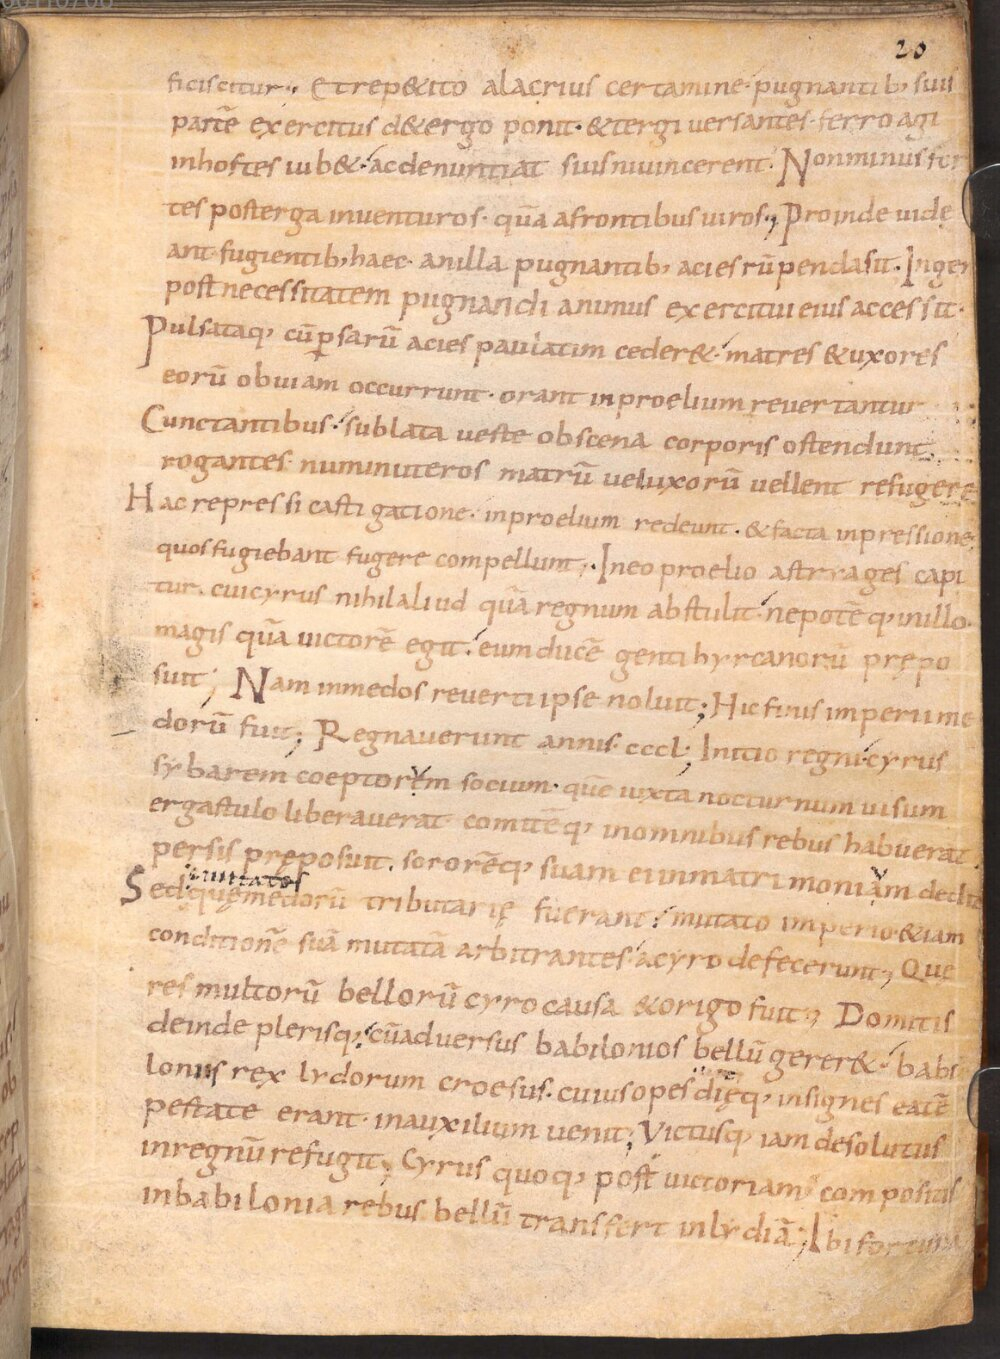 20
ficiscitur·, Etrep&ito alacrius certamine· pugnantib; suis
partē exercitus d&ergo ponit· &tergiversantes· ferro agi
inhostes iub&· acdenuntiat suis niuincerent· Nonminus for
tes posterga inventuros· quā afrontibus viros·, Proinde vide
ant· fugientib; haec· anilla pugnantib; acies rūpenda sit· Ingens
post necessitatem pugnandi animus exercitui eius accessit·
Pulsataq; cū p̱sarū acies paulatim ceder&· matres &uxores
eorū obviam occurrunt· orant inproelium revertantur
Cunctantibus· sublata veste obscena corporis ostendunt·
rogantes numinuteros matrū veluxorū vellent refugere
Hac repressi castigatione· inproelium redeunt· &facta inpressione·
quos fugiebant fugere compellunt·, Ineo proelio astrages capi
tur· cuicyrus nihilaliud quā regnum abstulit· nepotēq; inillo·
magis quā victorē egit· eum ducē genti hyrcanorū prępo
suit; Nam inmedos reverti ipse noluit; Hic finis imperii me
dorū fuit; Regnaverunt annis· cccl; Initio regni· cyrus
sybarem coeptorem socium· quē iuxta nocturnum visum
ergastulo liberaverat comitēq; inomnibus rebus habuerat
persis pręposuit· sororēq; suam ei inmatrimoniam dedit
civitates
Sedquęmedorū tributarię fuerant· mutato imperio &iam
conditionē suā mutatā arbitrantes· acyro defecerunt·, Quę
res multorū bellorū cyro causa &origo fuit·, Domitis
deinde plerisq; cū adversus babilonios bellū gerer&· babi
lonus rex lydorum croesus· cuius opes dięq; insignes eatē
pestate erant· inauxilium venit; Victusq; iam desolutus
inregnū refugit; Cyrus quoq; post victoriam compositis
inbabilonia rebus bellū transfert inlydiā; Ibi fortuna